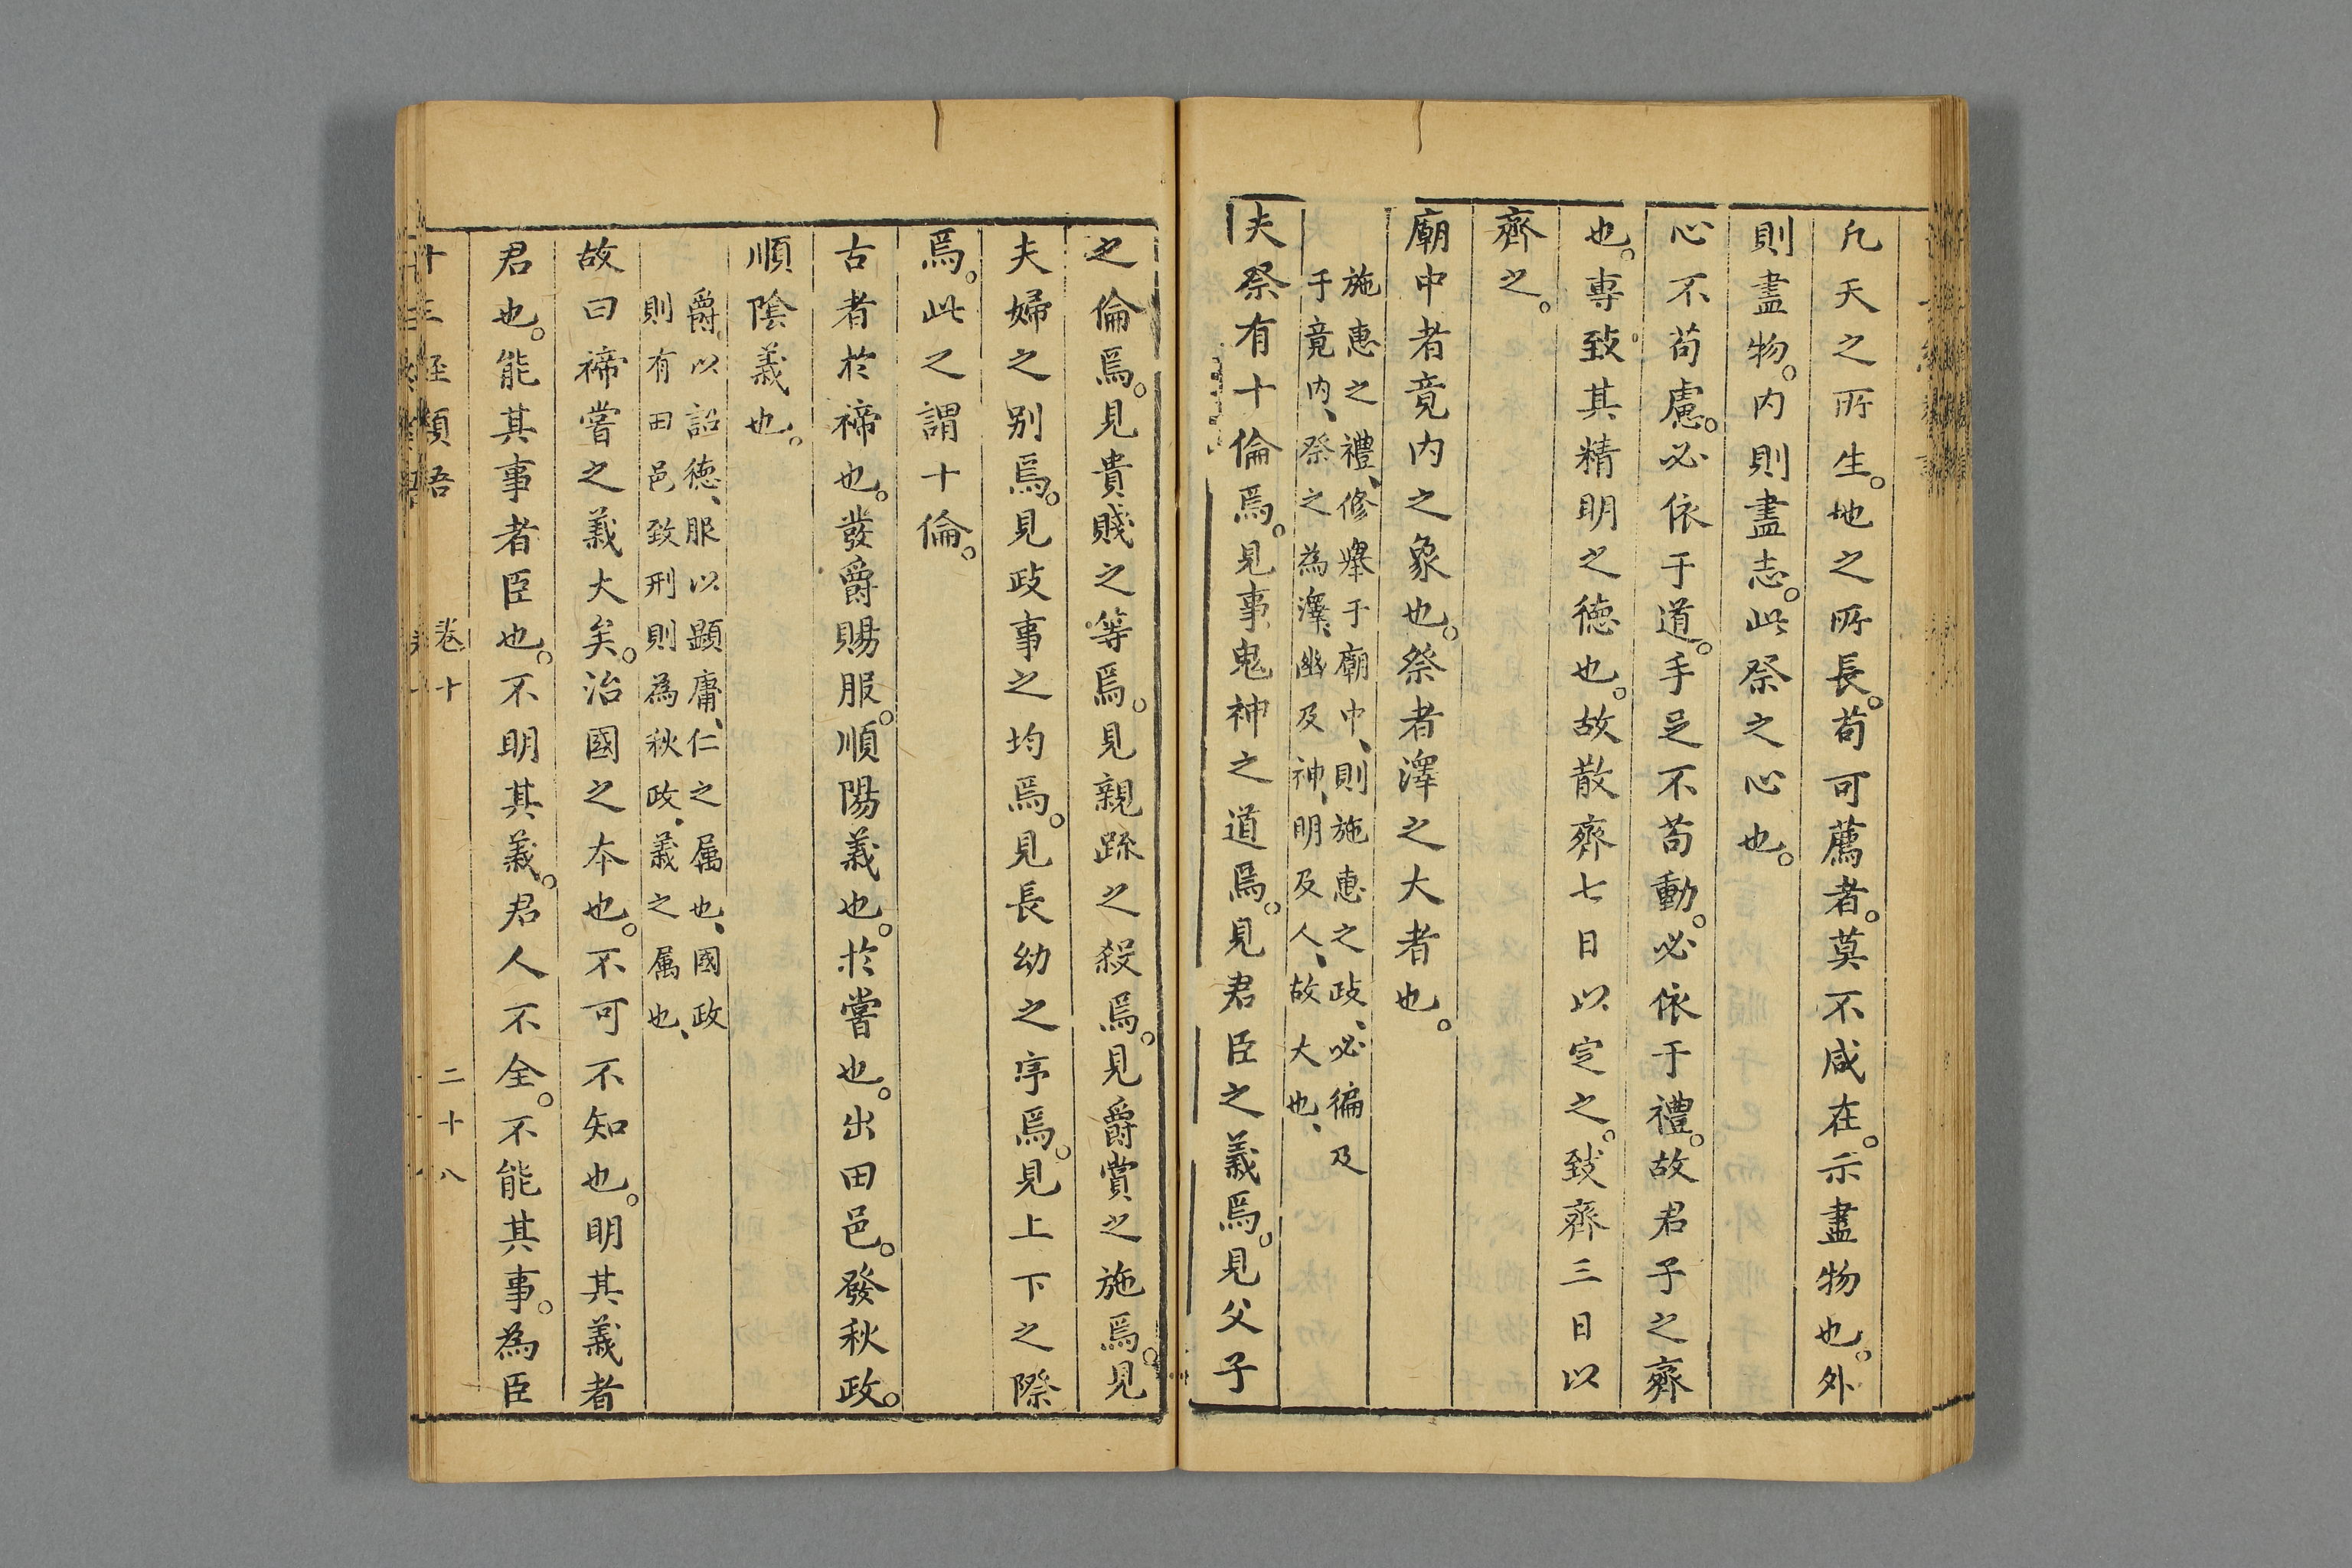 凡天之所生。地之所長。苟可薦者。莫不咸在。示盡物也。外
則盡物。内則盡志。此祭之心也。
心不苟慮。必依于道。手足不苟動。必依于禮。故君子之齊
也。專致其精明之德也。故散齊七日以定之。致齊三日以
齊之。
廟中者竟内之象也。祭者澤之大者也。
施惠之禮、修舉于廟中、則施惠之政、必徧及
于竟内、祭之為澤、幽及神、明及人、故大也、
夫祭有十倫焉。見事鬼神之道焉。見君臣之義焉。見父子
之倫焉。見貴賤之等焉。見親疏之殺焉。見爵賞之施焉。見
夫婦之别焉。見政事之均焉。見長幼之序焉。見上下之際
焉。此之謂十倫。
古者於禘也。發爵賜服。順陽義也。於嘗也。出田邑。發秋政。
順陰義也。
爵以詔德、服以顯庸、仁之属也、國政
則有田邑致刑則為秋政、義之属也、
故曰禘嘗之義大矣。治國之本也。不可不知也。明其義者
君也。能其事者臣也。不明其義。君人不全。不能其事。為臣
十三經類語 卷十 二十八